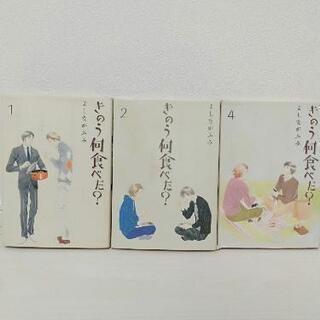 1
きのう何食べた?
よしながふみ
2
きのう何食べた?
よしながふみ
4
きのう何食べた?
よしながふみ